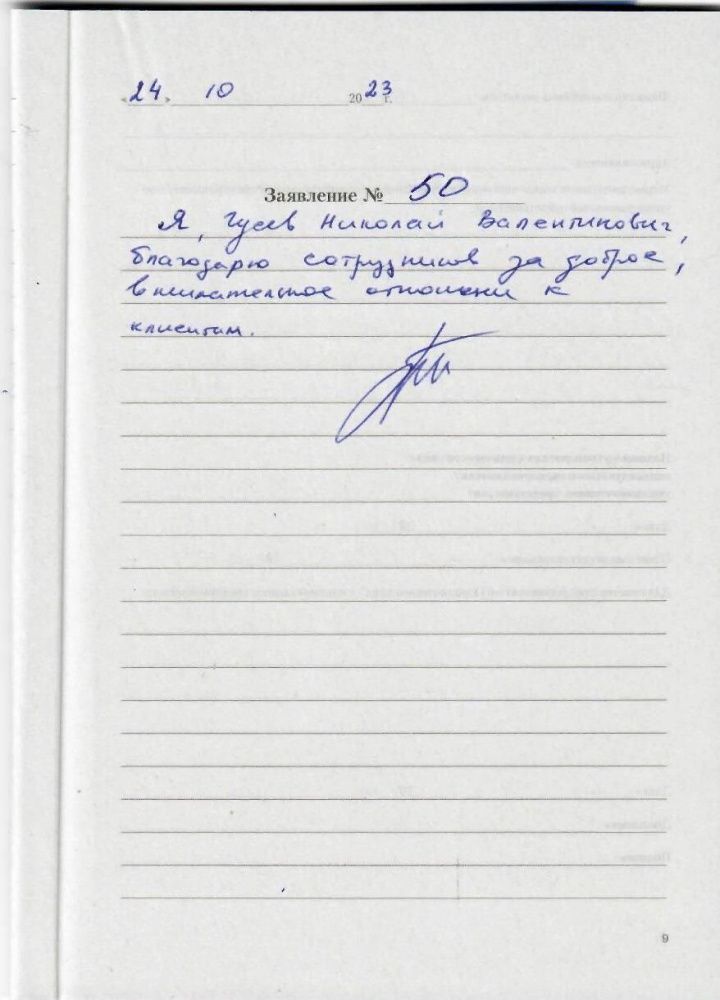 «24» 10 2023 г.
Заявление № 50
Я, Гусев Николай Валентинович,
благодарю сотрудников за доброе,
внимательное отношени к
клиентам.
9